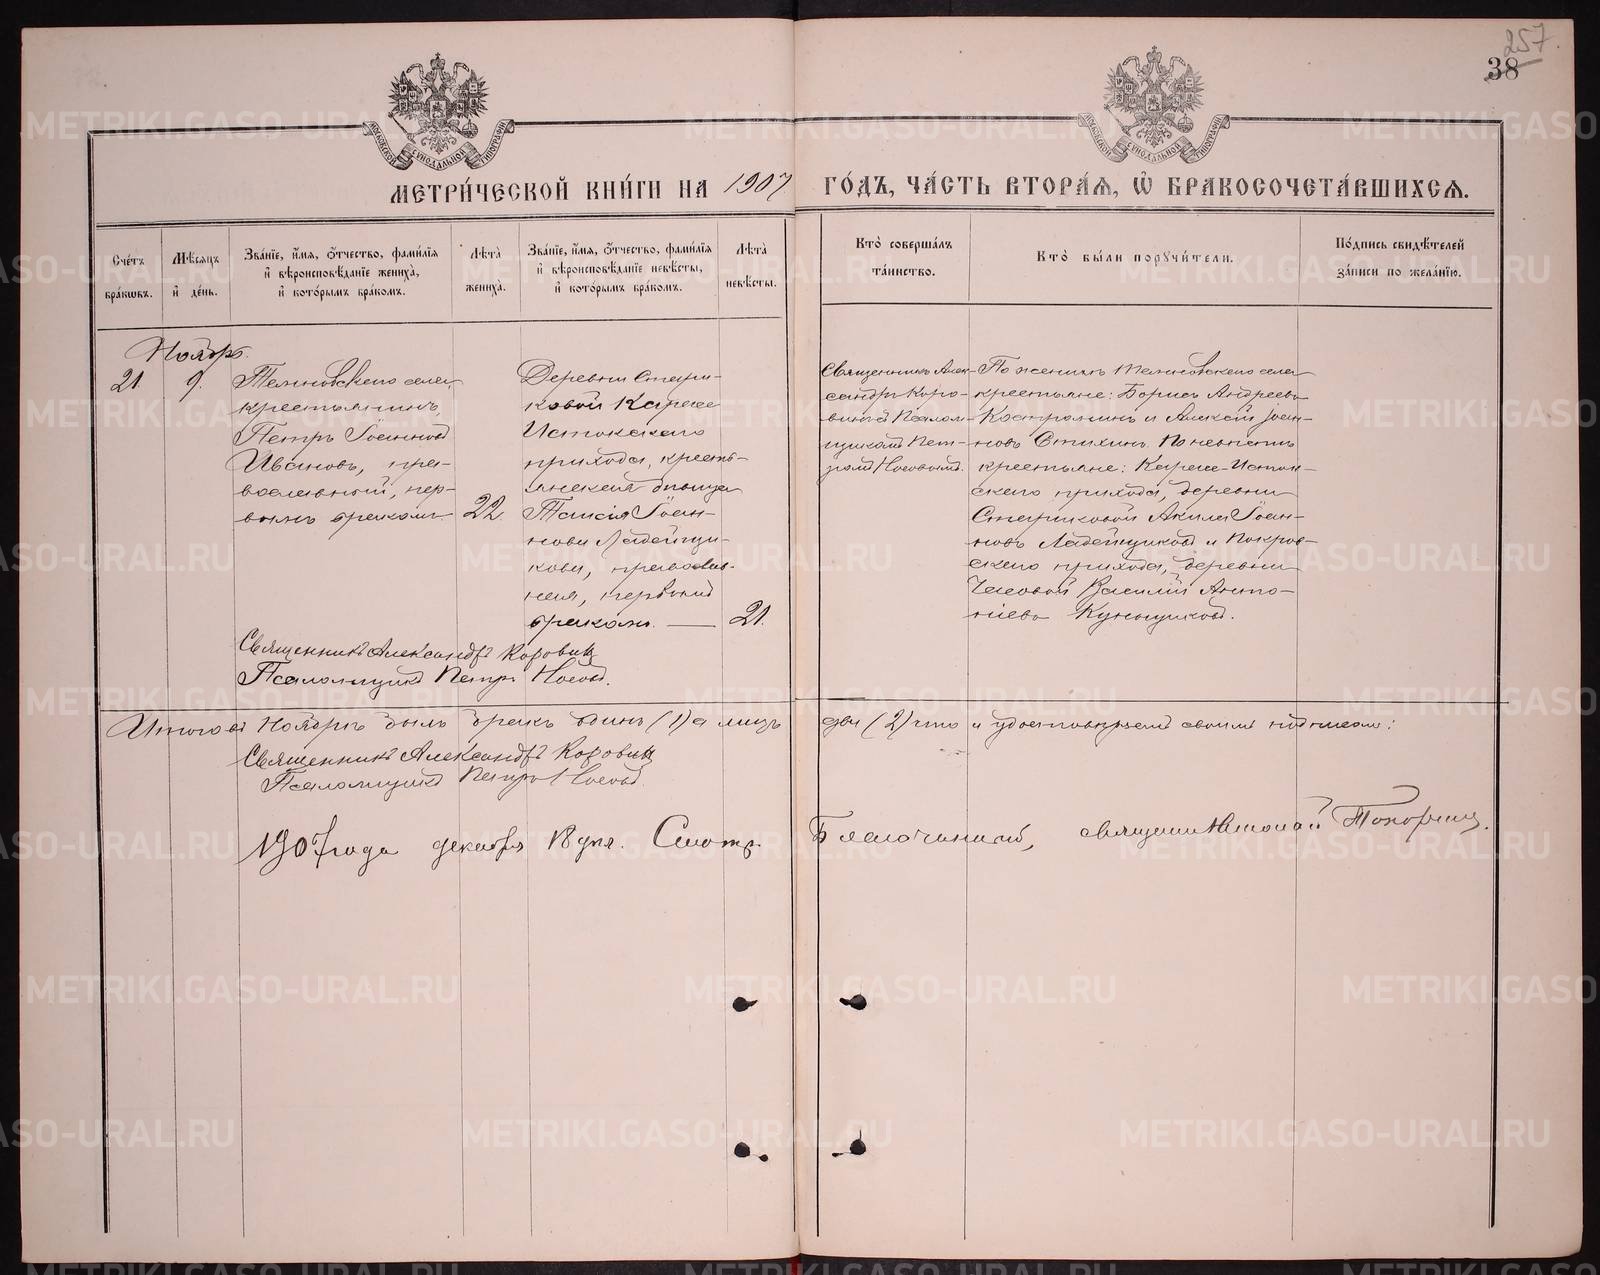 257.
38
МОСКОВСКОЙ СѴНОДАЛЬНОЙ ТИПОГРАФІИ
МОСКОВСКОЙ СѴНОДАЛЬНОЙ ТИПОГРАФІИ
МЕТРИ́ЧЕСКОЙ КНИ́ГИ НА 1907 ГО́ДЪ, ЧА́СТЬ ВТОРА́Ѧ, Ѽ БРАКОСОЧЕТА́ВШИХСѦ.
Сче́тъ бра́кѡвъ.
Мѣ́сѧцъ и҆ де́нь.
Зва́нїе, и҆́мѧ, ѻ҆́тчество, фами́лїѧ и҆ вѣроисповѣ́данїе жениха̀, и҆ кото́рымъ бра́комъ.
Лѣ́та жениха̀.
Зва́нїе, и҆́мѧ, ѻ҆́тчество, фами́лїѧ и҆ вѣроисповѣ́данїе невѣ́сты, и҆ кото́рымъ бра́комъ.
Лѣ́та невѣ́сты.
Кто̀ соверша́лъ та́инство.
Кто̀ бы́ли порꙋчи́тели.
По́дпись свидѣ́телей за́писи по жела́нїю.
Ноябрь.
21.
9.
села
крестьянинъ
Петръ Іоанновъ
Ивановъ, пра-
вославный, пер-
вымъ бракомъ.
22.
Деревни Стари-
ковой Караше
Истокскаго
прихода, кресть-
янская дѣвица
Таисія Іоан-
нова Ладейщи-
кова, православ-
ная, первымъ
бракомъ.
21.
Священникъ Алек-
сандръ Коро-
винъ съ Псалом-
щикомъ Пет-
ромъ Носовымъ.
По женихѣ села
крестьяне: Борисъ Андреевъ
и Алексѣй Іоан-
новъ Стихинъ. По невѣстѣ
крестьяне: Караше-Исток-
скаго прихода, деревни
Стариковой Акила Іоан-
новъ Ладейщиковъ и Покров-
скаго прихода, деревни
Часовой Василій Анто-
ніевъ
Священникъ Александръ Коровинъ
Псаломщикъ Петръ Носовъ.
Итого въ Ноябрѣ былъ бракъ одинъ (1) а лицъ два (2) что и удостовѣряемъ своимъ подписомъ:
Священникъ Александръ Коровинъ
Псаломщикъ Петръ Носовъ
1907 года декабря 18 дня. Смотр. Благочинный, священ Николай Топорковъ.
METRIKI.GASO-URAL.RU